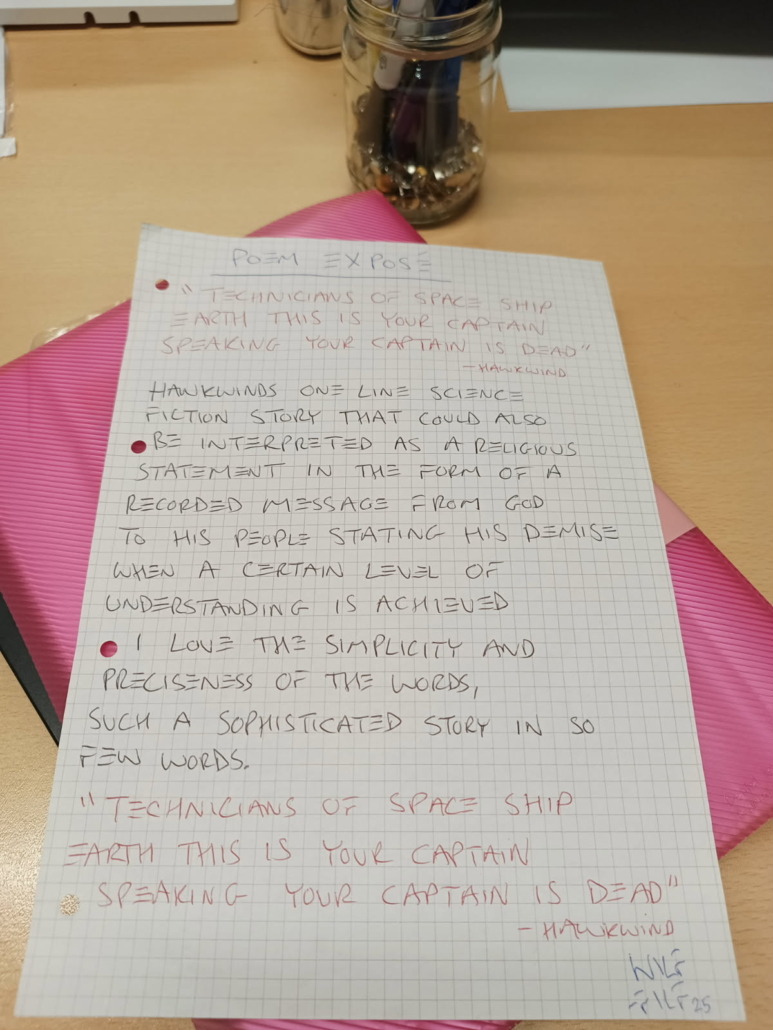 POEM EXPOSÉ
"TECHNICIANS OF SPACE SHIP
EARTH THIS IS YOUR CAPTAIN
SPEAKING YOUR CAPTAIN IS DEAD"
-HAWKWIND
HAWKWINDS ONE LINE SCIENCE
FICTION STORY THAT COULD ALSO
BE INTERPRETED AS A RELIGIOUS
STATEMENT IN THE FORM OF A
RECORDED MESSAGE FROM GOD
TO HIS PEOPLE STATING HIS DEMISE
WHEN A CERTAIN LEVEL OF
UNDERSTANDING IS ACHIEVED
I LOVE THE SIMPLICITY AND
PRECISENESS OF THE WORDS,
SUCH A SOPHISTICATED STORY IN SO
FEW WORDS.
"TECHNICIANS OF SPACE SHIP
EARTH THIS IS YOUR CAPTAIN
SPEAKING YOUR CAPTAIN IS DEAD"
- HAWKWIND
25